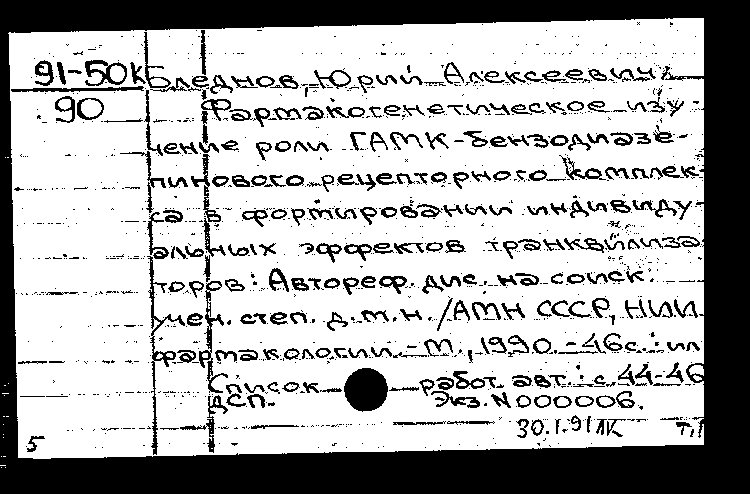 91-50К Бледнов, Юрий Алексеевич.
90 Фармакогенетическое изу-
чение роли ГАМК-бензодиазе-
пинового рецепторного комплек-
са в формировании индивиду-
альных эффектов транквилиза
торов: Автореф. дис. на соиск.
учен. степ. д.м.н. /АМН СССР, НИИ
фармакологии. -М., 1990. -46с.: ил
Список работ авт.: с 44-46
ДСП. Экз. N000006.
30.1.91 ЛК
5